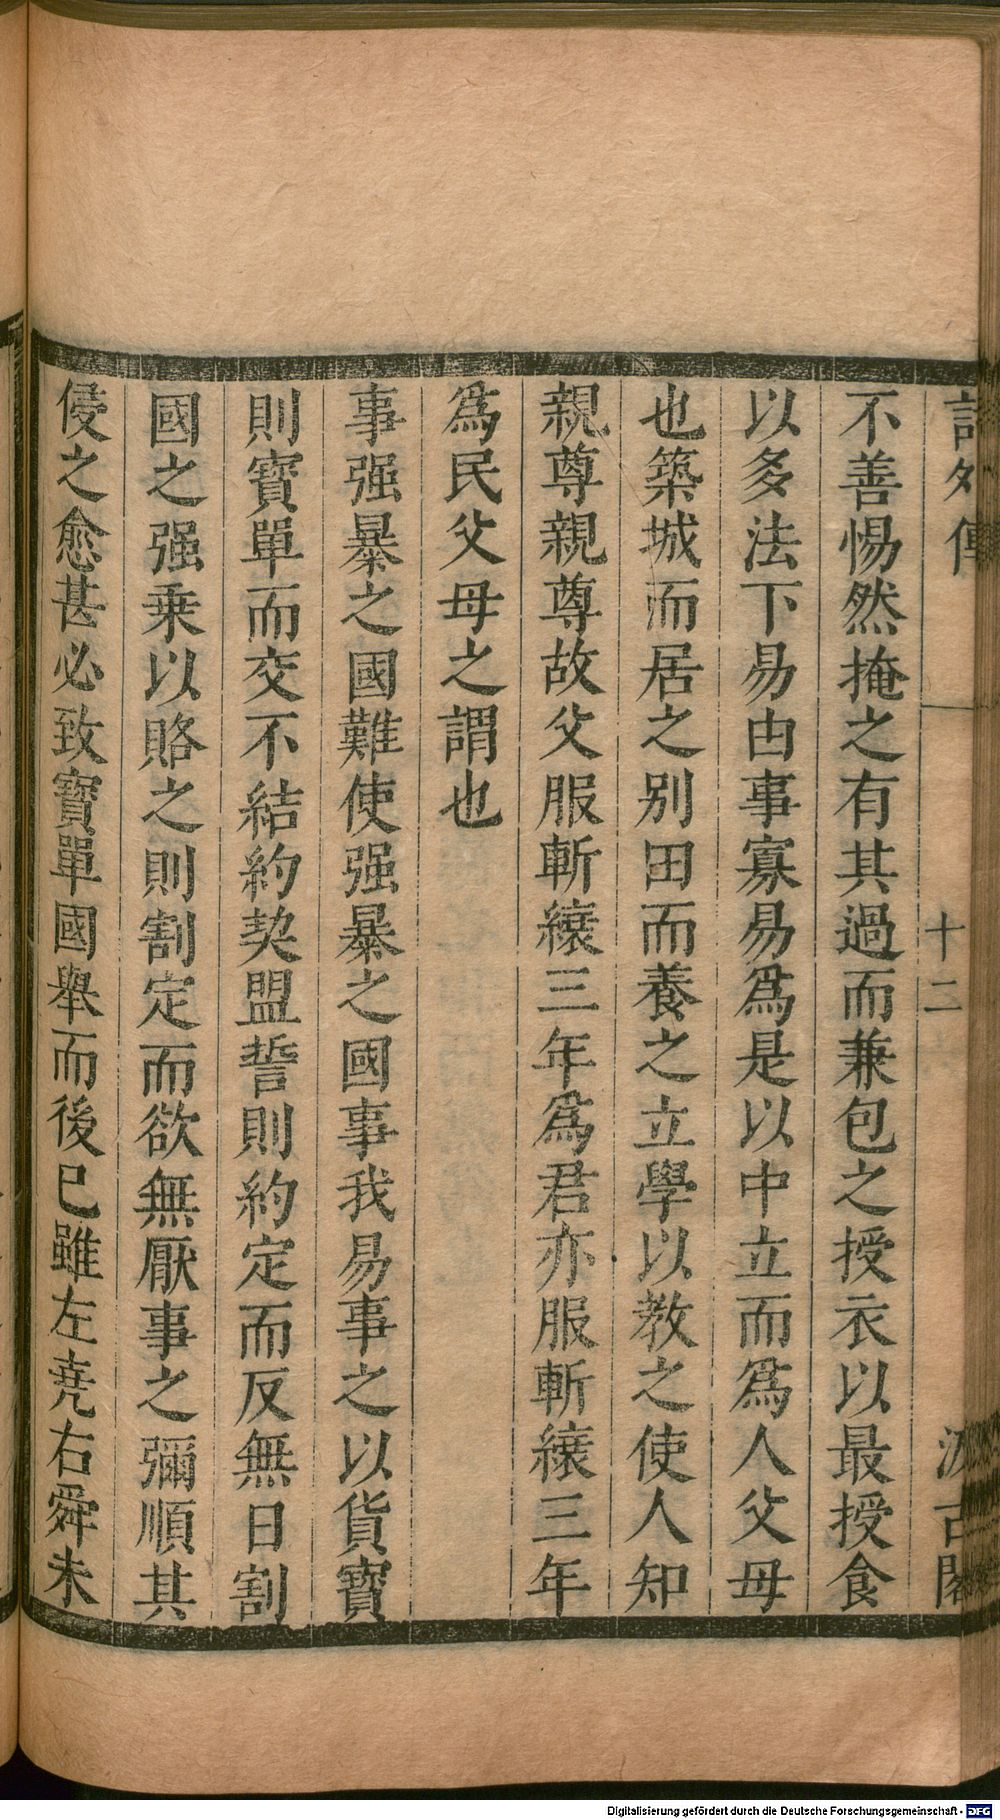 詩外傳
十二
汲古閣
不善惕然掩之有其過而兼包之授衣以最授食
以多法下易由事寡易爲是以中立而爲人父母
也築城而居之別田而養之立學以教之使人知
親尊親尊故父服斬縗三年爲君亦服斬縗三年
爲民父母之謂也
事强暴之國難使强暴之國事我易事之以貨寶
則寶單而交不結約契盟誓則約定而反無日割
國之强乘以賂之則割定而欲無厭事之彌順其
侵之愈甚必致寶單國舉而後已雖左堯右舜未
Digitalisierung gefördert durch die Deutsche Forschungsgemeinschaft - DFG